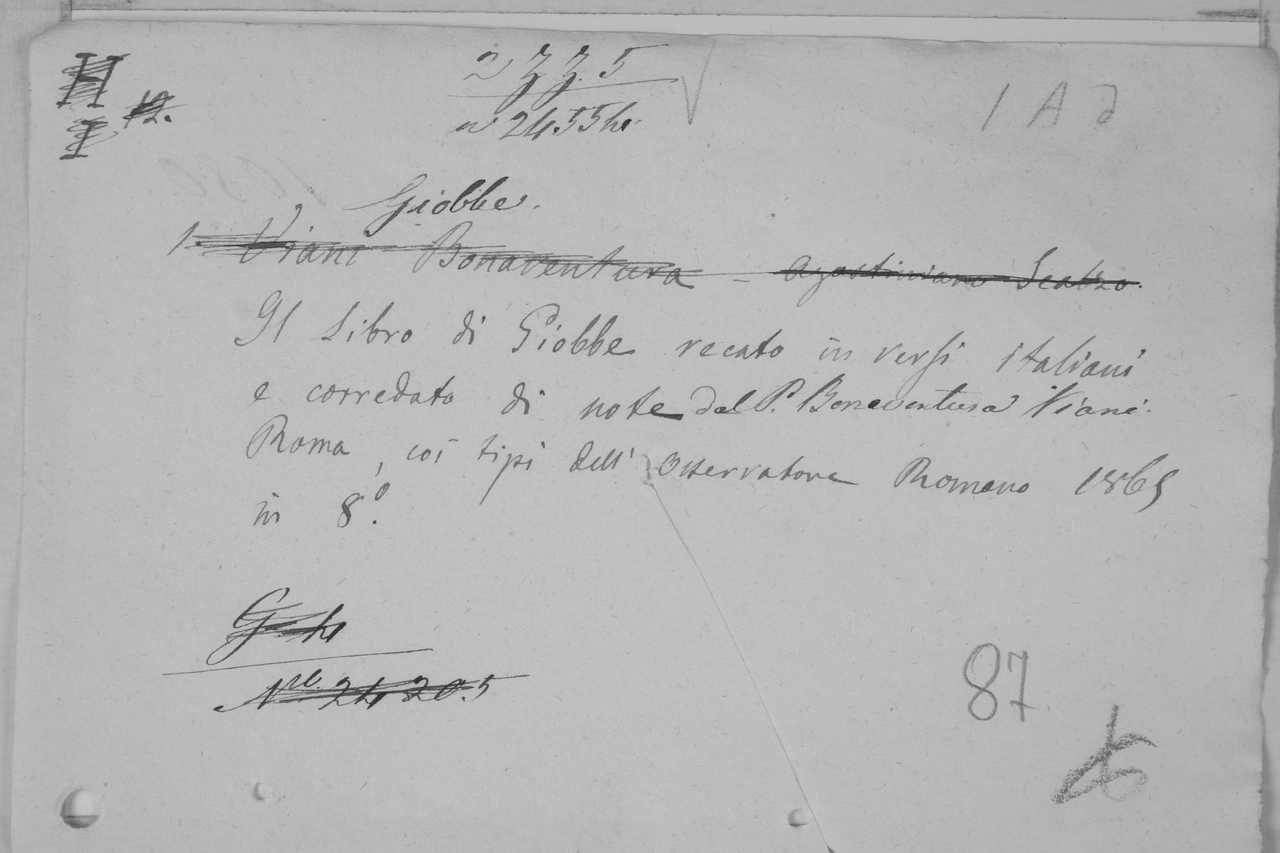 H
I 12.
Z Z. 5
n 24554.
1 A d
Giobbe.
1. Viani Bonaventura - Agostiniano Scalzo.
Il Libro di Giobbe recato in versi italiani
e corredato di note del P. Bonaventura Viani.
Roma, coi tipi dell' Osservatore Romano 1865
in 8.°
G 4
N.ro 24 20.5
87